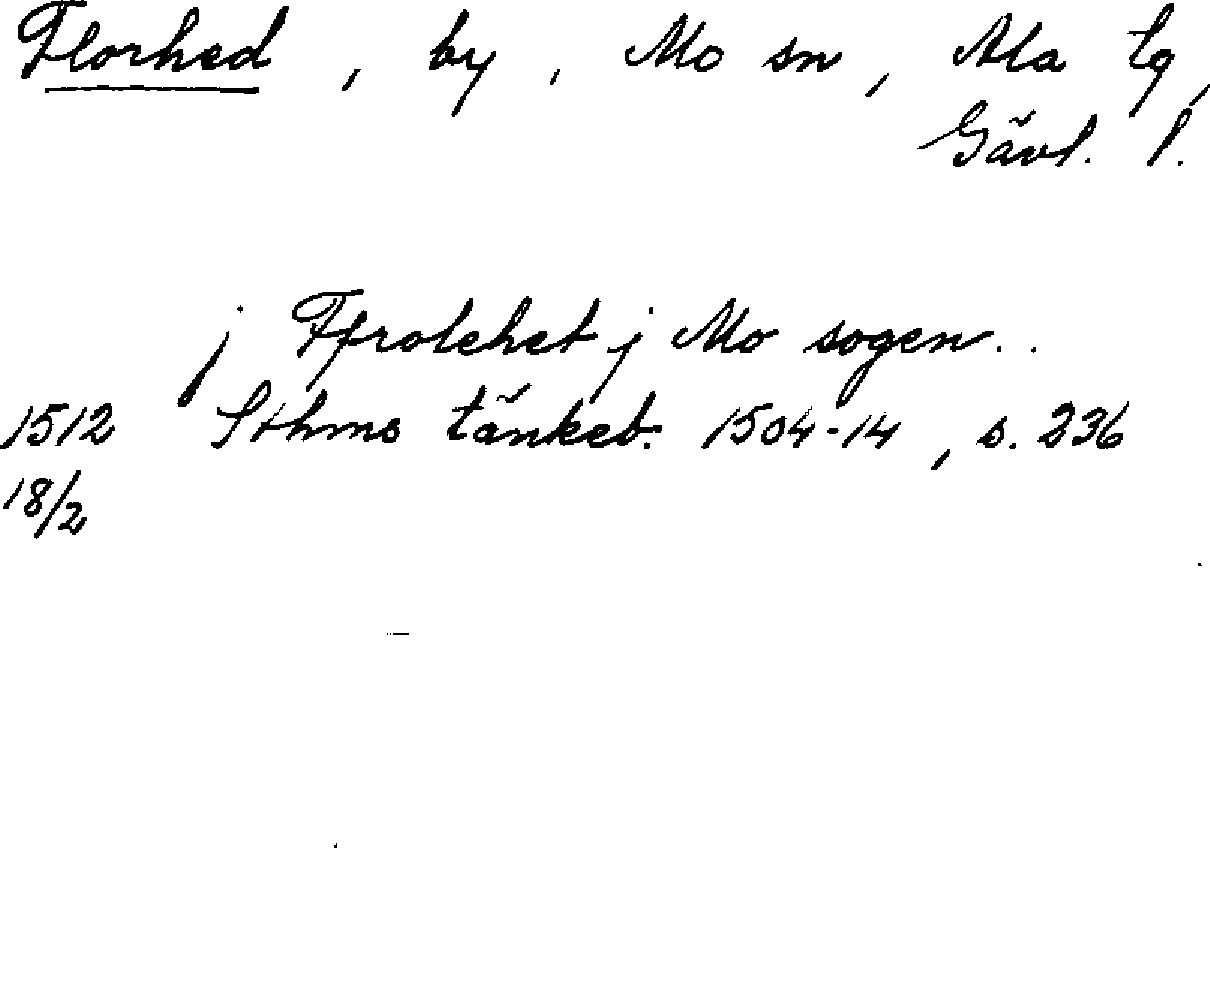 Florhed, by, Mo sn, Ala tg,
Gävl. l.
j Ffrolehet j Mo sogen..
1512 Sthms tänkeb. 1504-14, s. 236
18/2